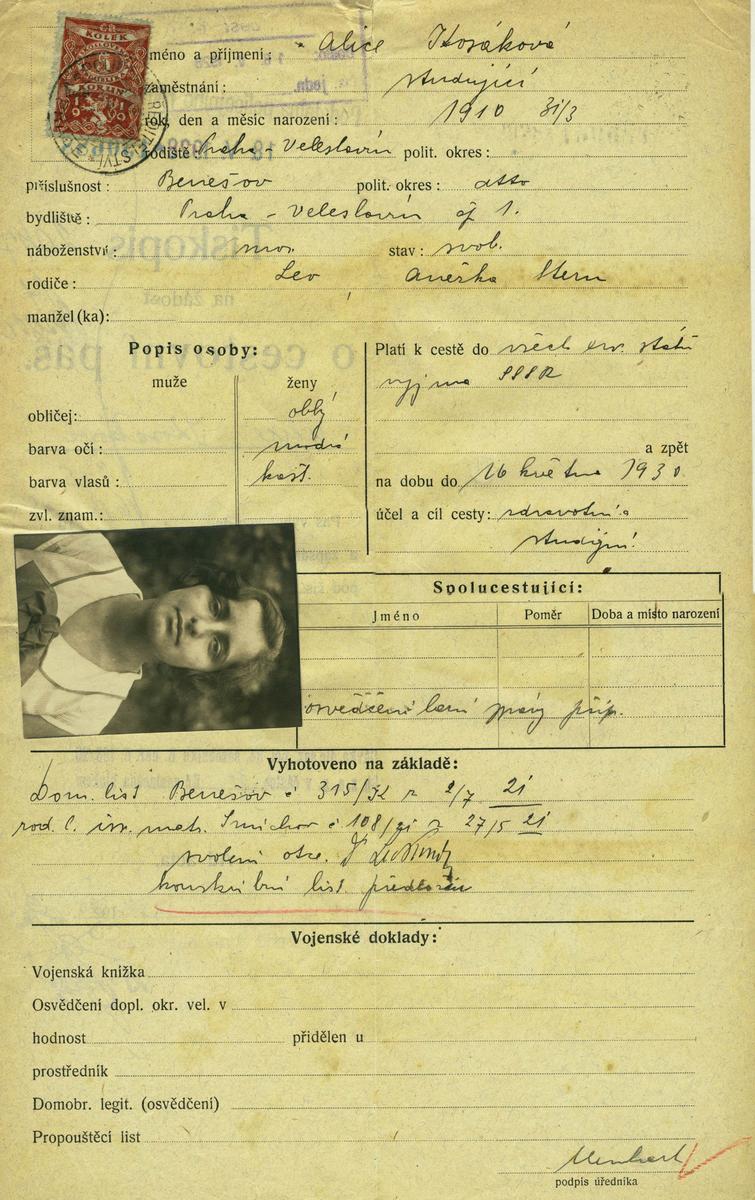 KOLEK
1 KORUNA
jméno a příjmení: Alice Kosáková
zaměstnání: studující
rok, den a měsíc narození: 1910 31/3
rodiště: Praha - Veleslavín polit. okres:
příslušnost: Benešov polit. okres: dtto
bydliště: Praha - Veleslavín čp 1.
náboženství: stav: svob.
rodiče: Leo, Anežka Stern
manžel(ka):
Popis osoby:
muže ženy
obličej: oblý
barva očí: modrá
barva vlasů: kašt.
zvl. znam.:
Platí k cestě do všech evr. států
vyjma SSSR
a zpět
na dobu do 16 května 1930
účel a cíl cesty: zdravotní a
studijní
Spolucestující:
Jméno Poměr Doba a místo narození
osvědčení
Vyhotoveno na základě:
Dom. list Benešov č 315/ z 2/7 21
rod. l. isr. mat. Smíchov č 108/ z 27/5 21
svolení otce.
konskribní list předložen
Vojenské doklady:
Vojenská knížka
Osvědčení dopl. okr. vel. v
hodnost přidělen u
prostředník
Domobr. legit. (osvědčení)
Propouštěcí list
podpis úředníka